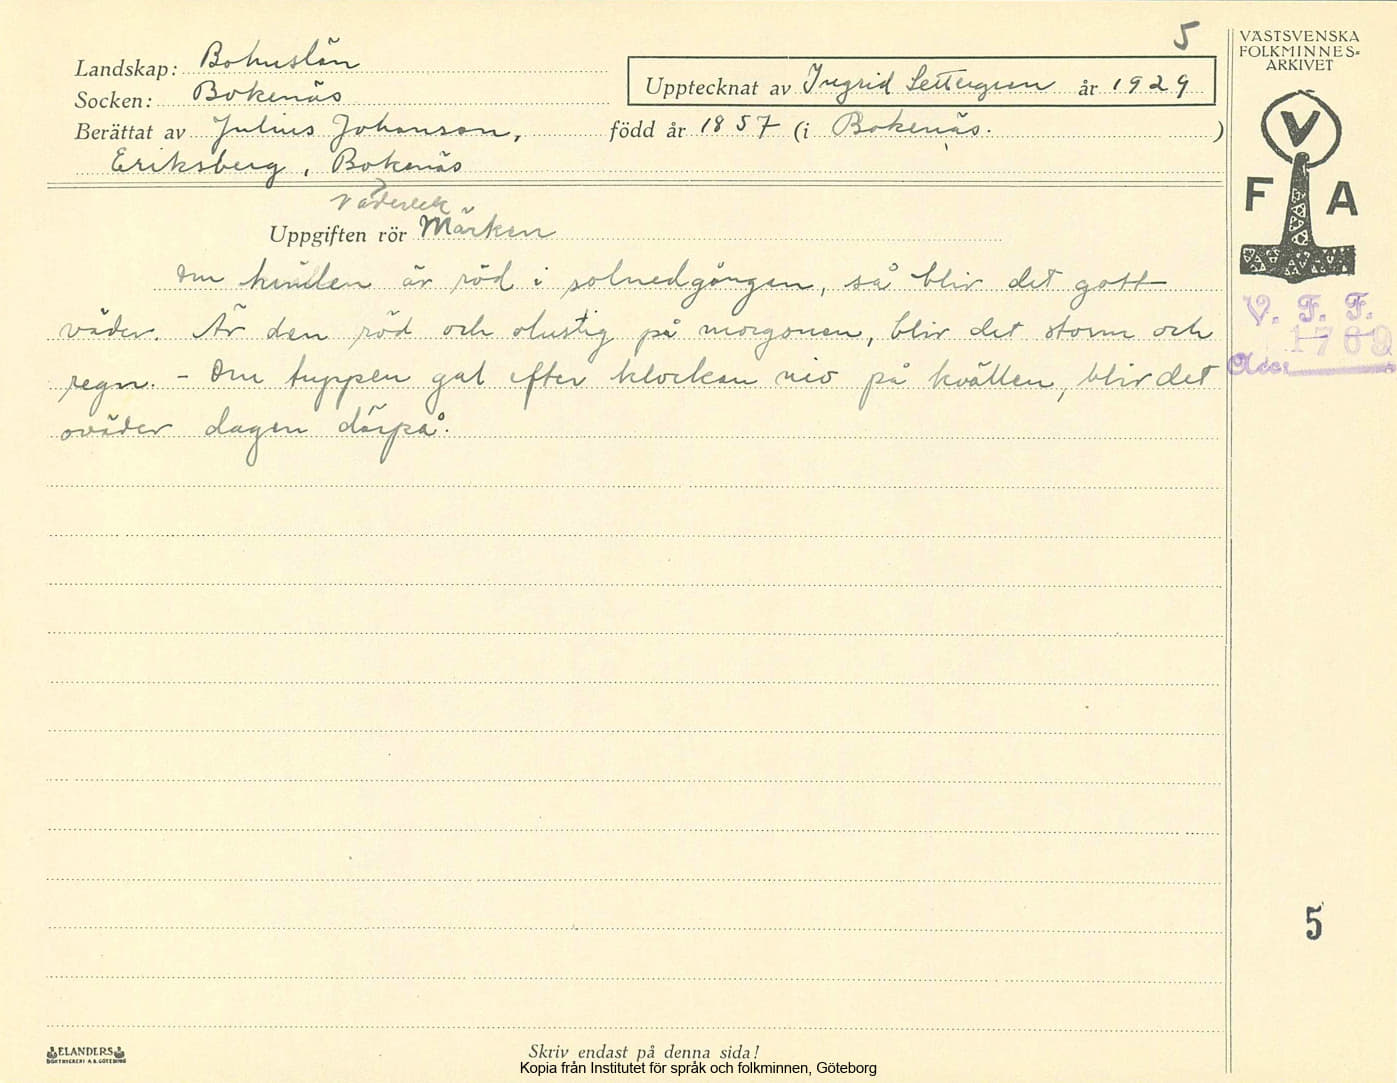 5
VÄSTSVENSKA
FOLKMINNES=
ARKIVET
Landskap: Bohuslän
Upptecknat av Ingrid Settergren år 1929
Socken: Bokenäs
Berättat av Julius Johanson, född år 1857 (i Bokenäs. )
Eriksberg, Bokenäs
V
F A
Väderlek
Uppgiften rör Märken
Om kvällen är röd i solnedgången, så blir det gott
väder. Är den röd och olustig på morgonen, blir det storm och
regn. - Om tuppen gal efter klockan nio på kvällen, blir det
oväder dagen därpå.
V. F. F.
1769
Acc
5
ELANDERS
BOKTRYCKERI A.B. GÖTEBORG
Skriv endast på denna sida!
Kopia från Institutet för språk och folkminnen, Göteborg